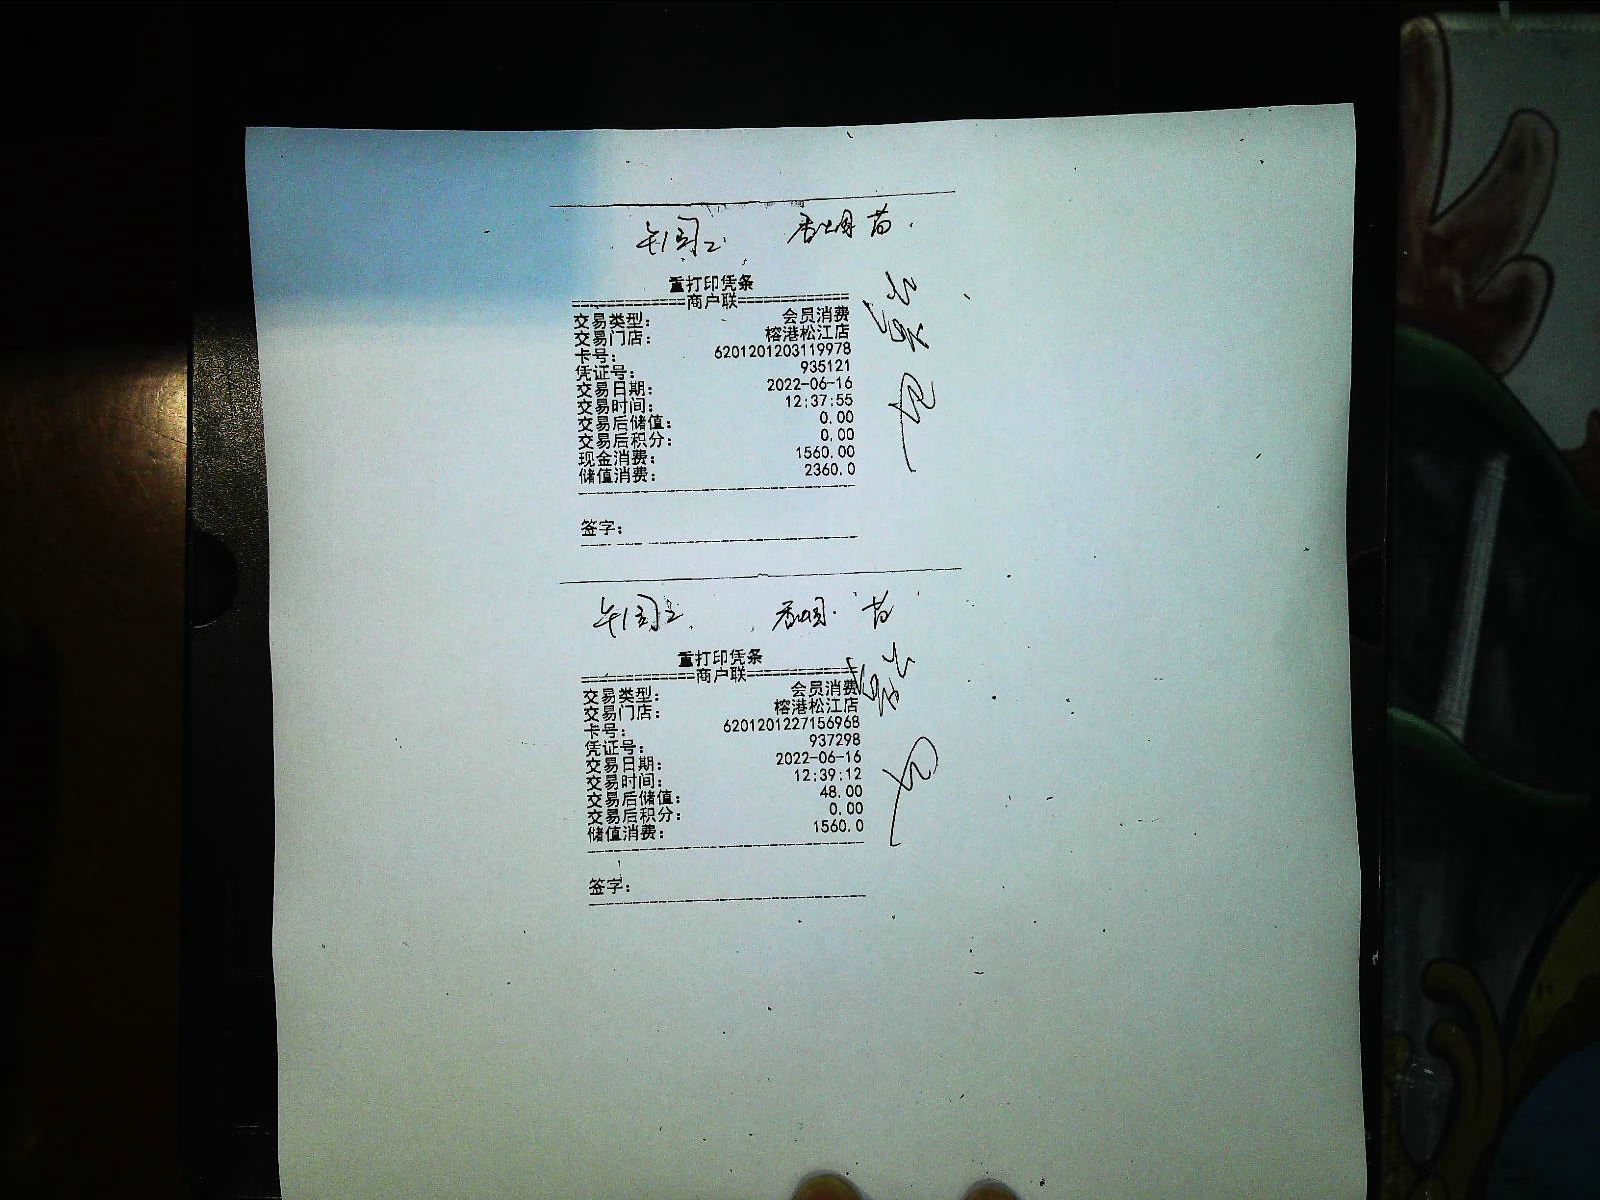 重打印凭条
=============商户联=============
交易类型： 会员消费
交易门店： 榕港松江店
卡号： 6201201203119978
凭证号： 935121
交易日期： 2022-06-16
交易时间： 12:37:55
交易后储值： 0.00
交易后积分： 0.00
现金消费： 1560.00
储值消费： 2360.0
签字：
重打印凭条
=============商户联=============
交易类型： 会员消费
交易门店： 榕港松江店
卡号： 6201201227156968
凭证号： 937298
交易日期： 2022-06-16
交易时间： 12:39:12
交易后储值： 48.00
交易后积分： 0.00
储值消费： 1560.0
签字：